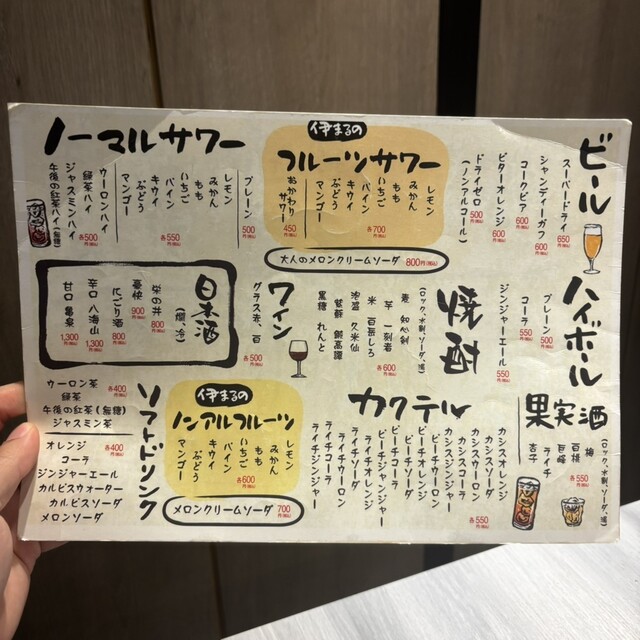 ビール
スーパードライ 650円(税込)
シャンディーガフ 600円(税込)
コークビア 600円(税込)
ビターオレンジ 600円(税込)
ドライゼロ 500円(税込)
(ノンアルコール)
伊まるの
フルーツサワー
レモン
みかん
もも
いちご
パイン
キウイ
ぶどう
マンゴー
各700円(税込)
おかわりサワー 450円(税込)
大人のメロンクリームソーダ 800円(税込)
ノーマルサワー
プレーン 500円(税込)
レモン
みかん
もも
いちご
パイン
キウイ
ぶどう
マンゴー
各550円(税込)
ウーロンハイ
緑茶ハイ
ジャスミンハイ
午後の紅茶ハイ(無糖)
各500円(税込)
ハイボール
プレーン 500円(税込)
コーラ 550円(税込)
ジンジャーエール 550円(税込)
焼酎
(ロック、水割、ソーダ、湯)
麦 知心剣
芋 一刻者
米 百岳しろ
泡盛 久米仙
紫蘇 鍛高譚
黒糖 れんと
各600円(税込)
ワイン
グラス赤、白 500円(税込)
日本酒
(燗、冷)
栄の井 800円(税込)
豪快 900円(税込)
にごり酒 800円(税込)
辛口 八海山 1,300円(税込)
甘口 亀泉 1,300円(税込)
果実酒
(ロック、水割、ソーダ、湯)
梅
百桃
巨峰
ライチ
杏子
各550円(税込)
カクテル
カシスオレンジ
カシスソーダ
カシスコーラ
カシスウーロン
カシスジンジャー
ピーチオレンジ
ピーチウーロン
ピーチコーラ
ピーチジンジャー
ライチオレンジ
ライチソーダ
ライチウーロン
ライチコーラ
ライチジンジャー
各550円(税込)
伊まるの
ノンアルフルーツ
レモン
みかん
もも
いちご
パイン
キウイ
ぶどう
マンゴー
各600円(税込)
メロンクリームソーダ 700円(税込)
ソフトドリンク
ウーロン茶
緑茶
午後の紅茶(無糖)
ジャスミン茶
各400円(税込)
オレンジ
コーラ
ジンジャーエール
カルピスウォーター
カルピスソーダ
メロンソーダ
各400円(税込)